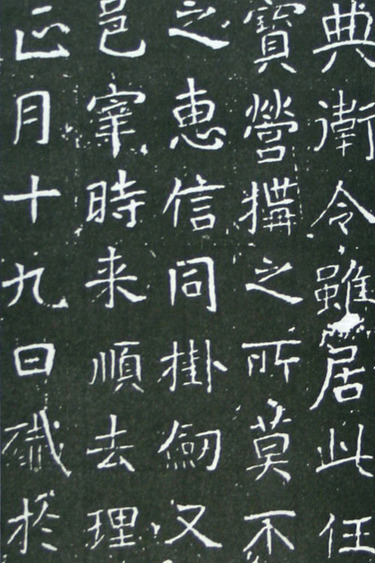 典衛令雖居此任
寶營搆之所莫不
之惠信同掛劒又
邑宰時来順去理
正月十九日於